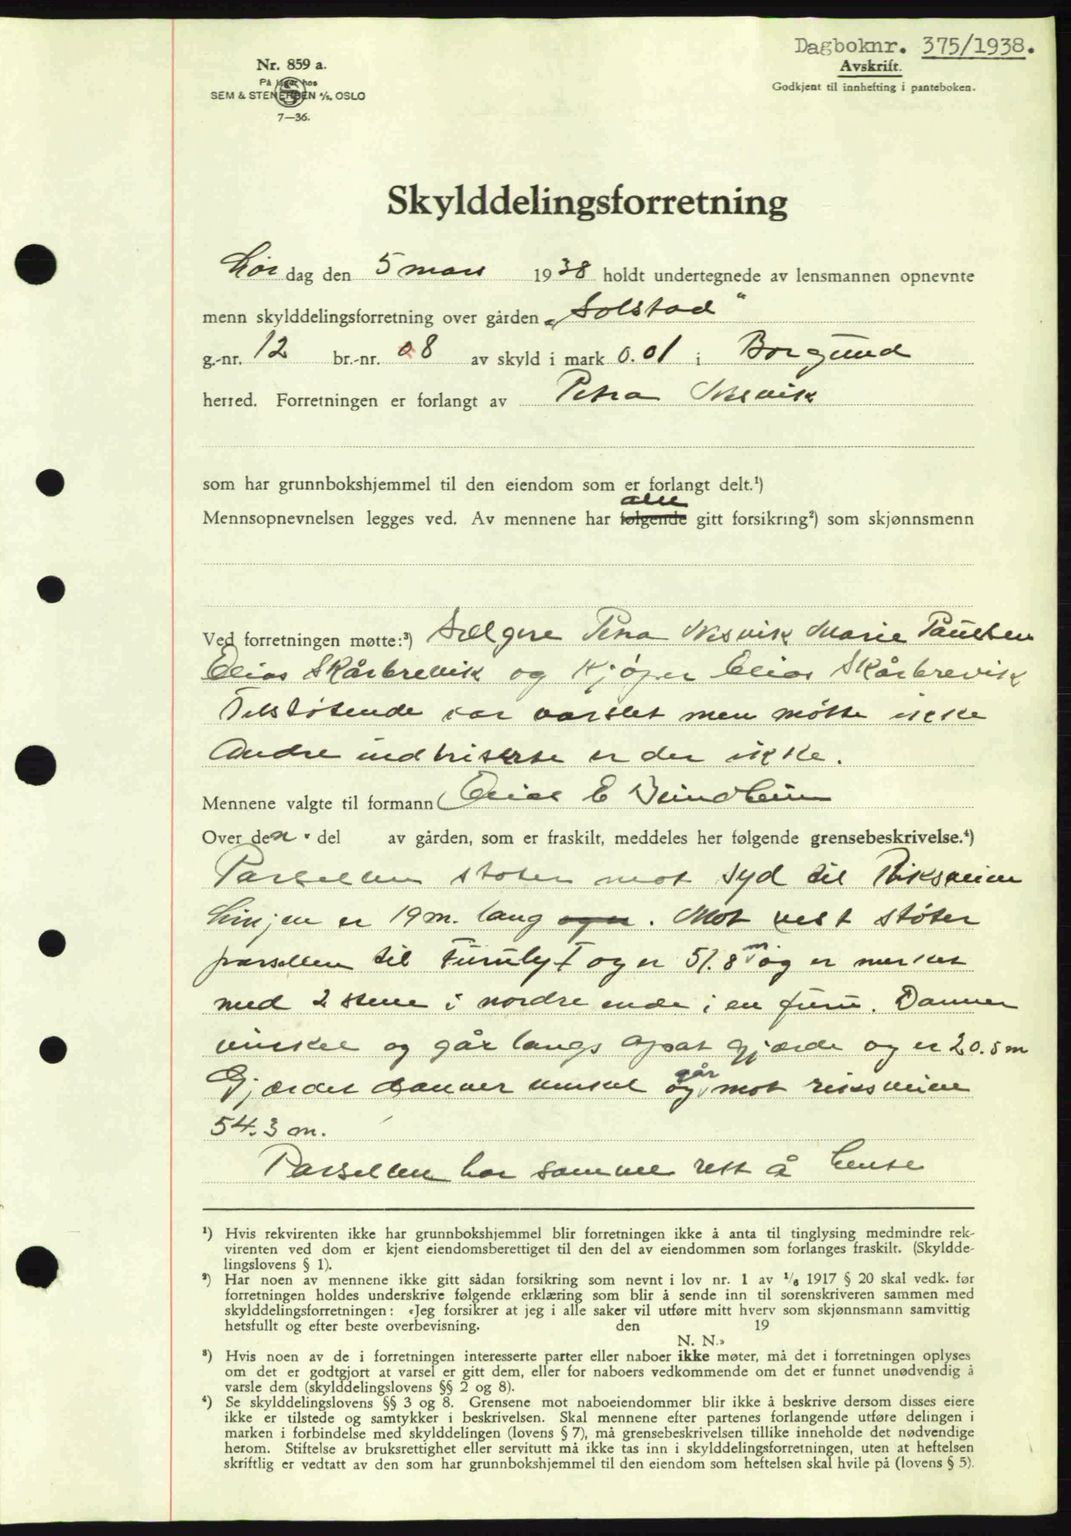 Dagboknr. 375/1938.
Avskrift.
Godkjent til innhefting i panteboken.
Nr. 859 a.
På lager hos
SEM & STENERSEN A/S, OSLO
7—36.
Skylddelingsforretning
Lør dag den 5 mars 1938 holdt undertegnede av lensmannen opnevnte
menn skylddelingsforretning over gården „Solstad"
g.-nr. 12 br.-nr. 8 av skyld i mark 0.01 i Borgund
herred. Forretningen er forlangt av Petra Nesvik
som har grunnbokshjemmel til den eiendom som er forlangt delt.¹)
alle
Mennsopnevnelsen legges ved. Av mennene har følgende gitt forsikring²) som skjønnsmenn
Ved forretningen møtte:³) Selgere Petra Nesvik Marie Paulsen
Elias Skårbrevik og Kjøper Elias Skårbrevik
Tilstøtende var varslet men møtte ikke
Andre er der ikke.
Mennene valgte til formann E
Over den del av gården, som er fraskilt, meddeles her følgende grensebeskrivelse.⁴)
Parsellen støter mot syd til Riksveien
Linjen er 19 m. lang . Mot vest støter
parsellen til Furuly I og er 51.8 m og er merket
med 2 stene i nordre ende i en furu. Danner
vinkel og går langs opsat gjærde og er 20.5 m
Gjærdet danner vinkel og går mot riksveien
54.3 m.
Parsellen har samme rett å hente
¹) Hvis rekvirenten ikke har grunnbokshjemmel blir forretningen ikke å anta til tinglysing medmindre rek-
virenten ved dom er kjent eiendomsberettiget til den del av eiendommen som forlanges fraskilt. (Skyldde-
lingslovens § 1).
²) Har noen av mennene ikke gitt sådan forsikring som nevnt i lov nr. 1 av 1/6 1917 § 20 skal vedk. før
forretningen holdes underskrive følgende erklæring som blir å sende inn til sorenskriveren sammen med
skylddelingsforretningen: «Jeg forsikrer at jeg i alle saker vil utføre mitt hverv som skjønnsmann samvittig
hetsfullt og efter beste overbevisning. den 19
N. N.»
³) Hvis noen av de i forretningen interesserte parter eller naboer ikke møter, må det i forretningen oplyses
om det er godtgjort at varsel er gitt dem, eller for naboers vedkommende om det er funnet unødvendig å
varsle dem (skylddelingslovens §§ 2 og 8).
⁴) Se skylddelingslovens §§ 3 og 8. Grensene mot naboeiendommer blir ikke å beskrive dersom disses eiere
ikke er tilstede og samtykker i beskrivelsen. Skal mennene efter partenes forlangende utføre delingen i
marken i forbindelse med skylddelingen (lovens § 7), må grensebeskrivelsen tillike inneholde det nødvendige
herom. Stiftelse av bruksrettighet eller servitutt må ikke tas inn i skylddelingsforretningen, uten at heftelsen
skriftlig er vedtatt av den som har grunnbokshjemmel til den eiendom som heftelsen skal hvile på (lovens § 5).